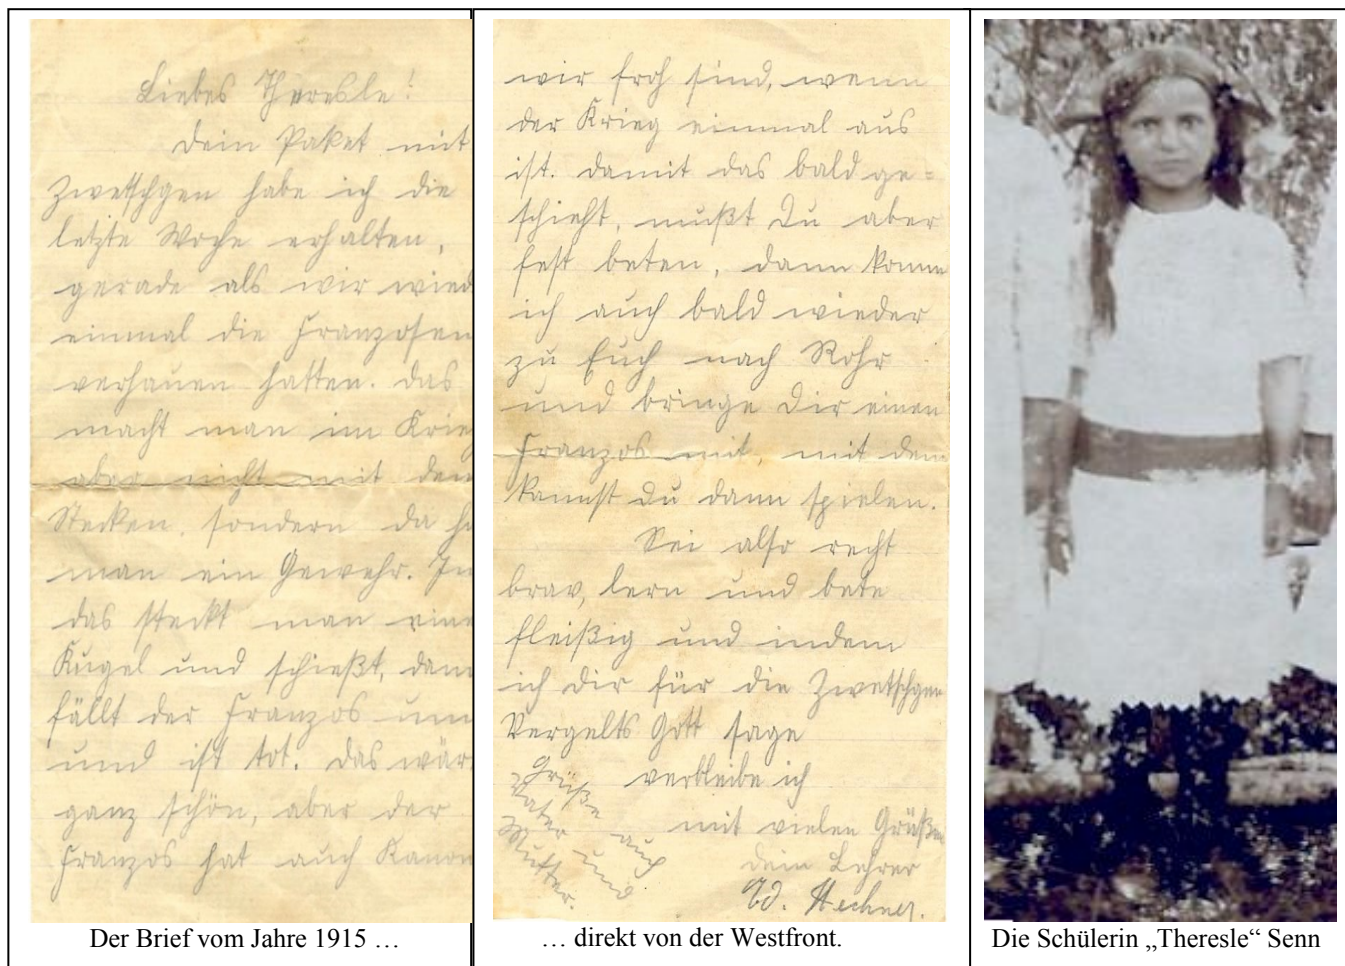 Liebes Theresle!
Dein Paket mit
Zwetschgen habe ich die
letzte Woche erhalten,
gerade als wir wied
einmal die Franzosen
verhauen hatten. Das
macht man im Krie
aber nicht mit dem
Stecken, sondern da h
man ein Gewehr. In
das steckt man eine
Kugel und schießt, dann
fällt der Franzos um
und ist tot. Das wär
ganz schön, aber der
Franzos hat auch Kanon
Der Brief vom Jahre 1915 …
wir froh sind, wenn
der Krieg einmal aus
ist. Damit das bald ge=
schieht, mußt Du aber
fest beten, dann komme
ich auch bald wieder
zu Euch nach Rohr
und bringe Dir einen
Franzos mit, mit dem
kannst Du dann spielen.
Sei also recht
brav, lern und bete
fleißig und indem
ich Dir für die Zwetschgen
Vergelts Gott sage
verbleibe ich
mit vielen Grüßen
Dein Lehrer
Ed.
Grüße auch
Vater und
Mutter.
… direkt von der Westfront.
Die Schülerin „Theresle“ Senn